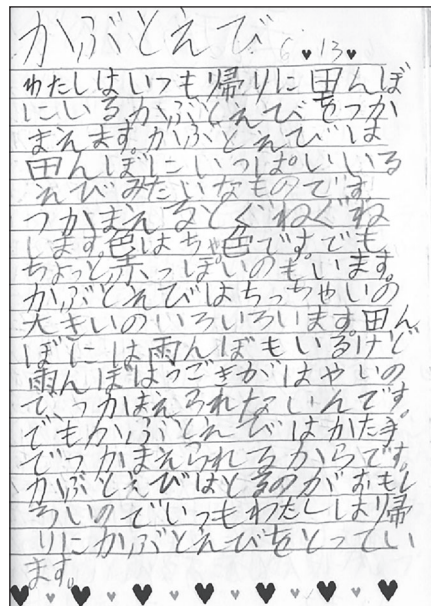 かぶとえび
6♥13♥
わたしはいつも帰りに田んぼ
にいるかぶとえびをつか
まえます。かぶとえびは
田んぼにいっぱいいる
えびみたいなものです。
つかまえるとぐねぐね
します。色はちゃ色です。でも
ちょっと赤っぽいのもいます。
かぶとえびはちっちゃいの
大きいのいろいろいます。田ん
ぼには雨んぼもいるけど
雨んぼはうごきがはやいの
で、つかまえられないんです。
でもかぶとえびはかた手
でつかまえられるからです。
かぶとえびはとるのがおもし
ろいのでいつもわたしは帰
りにかぶとえびをとってい
ます。